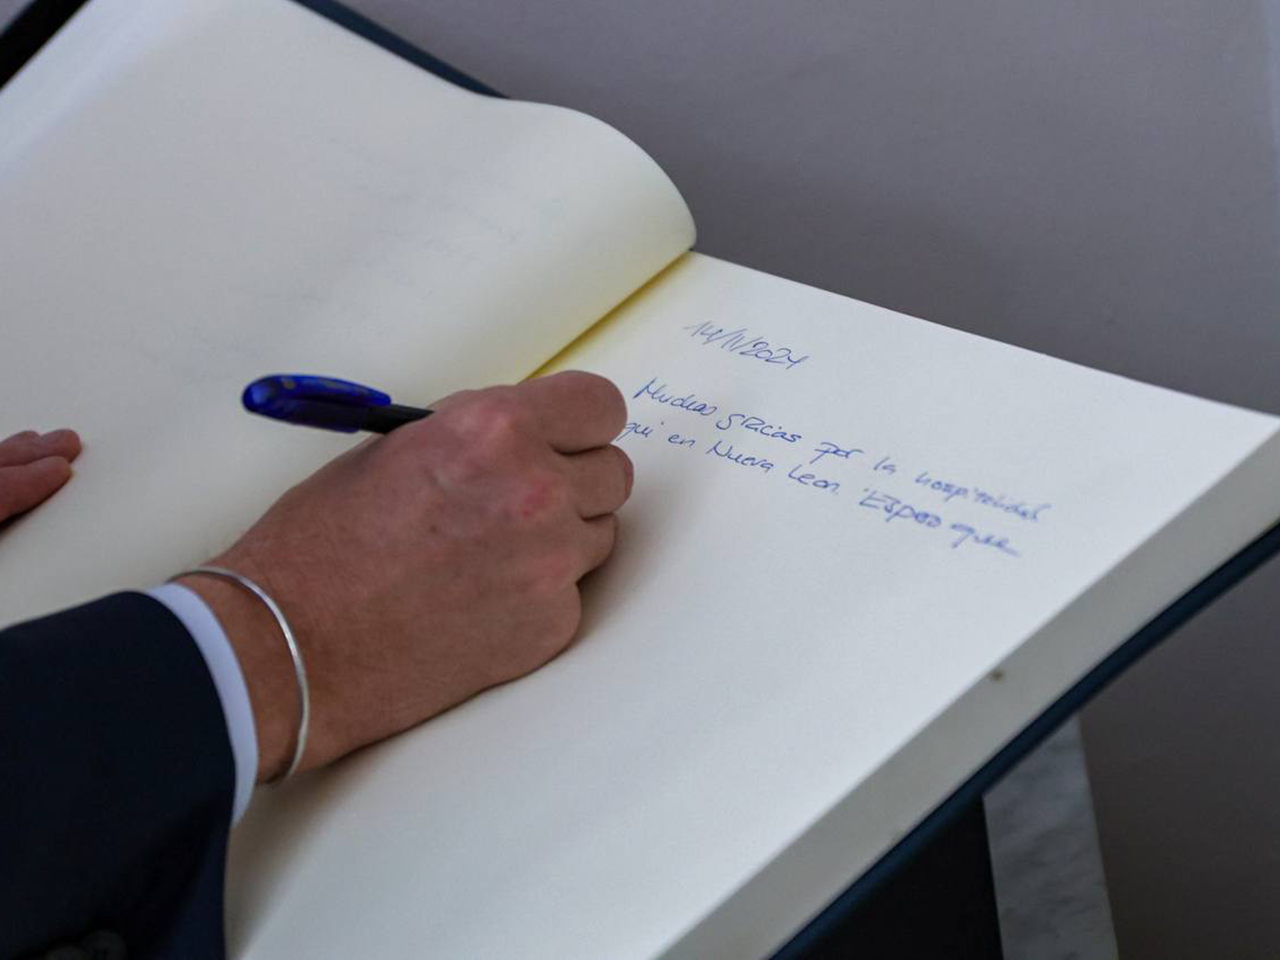 14/11/2024
Muchas gracias por la hospitalidad
aqui en Nueva Leon. Espero que